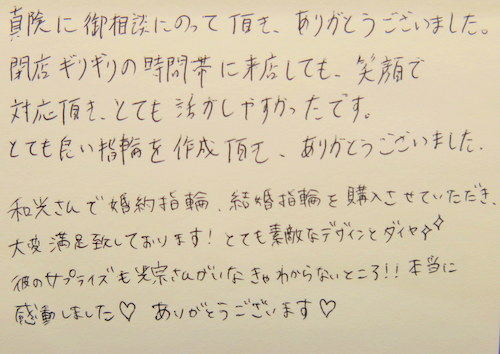 真険に御相談にのって頂き、ありがとうございました。
閉店ギリギリの時間帯に来店しても、笑顔で
対応頂き、とても話かしやすかったです。
とても良い指輪を作成頂き、ありがとうございました。
和光さんで婚約指輪、結婚指輪を購入させていただき、
大変満足致しております！とても素敵なデザインとダイヤ
彼のサプライズも さんがいなきゃわからないところ!!本当に
感動しました♡ ありがとうございます♡